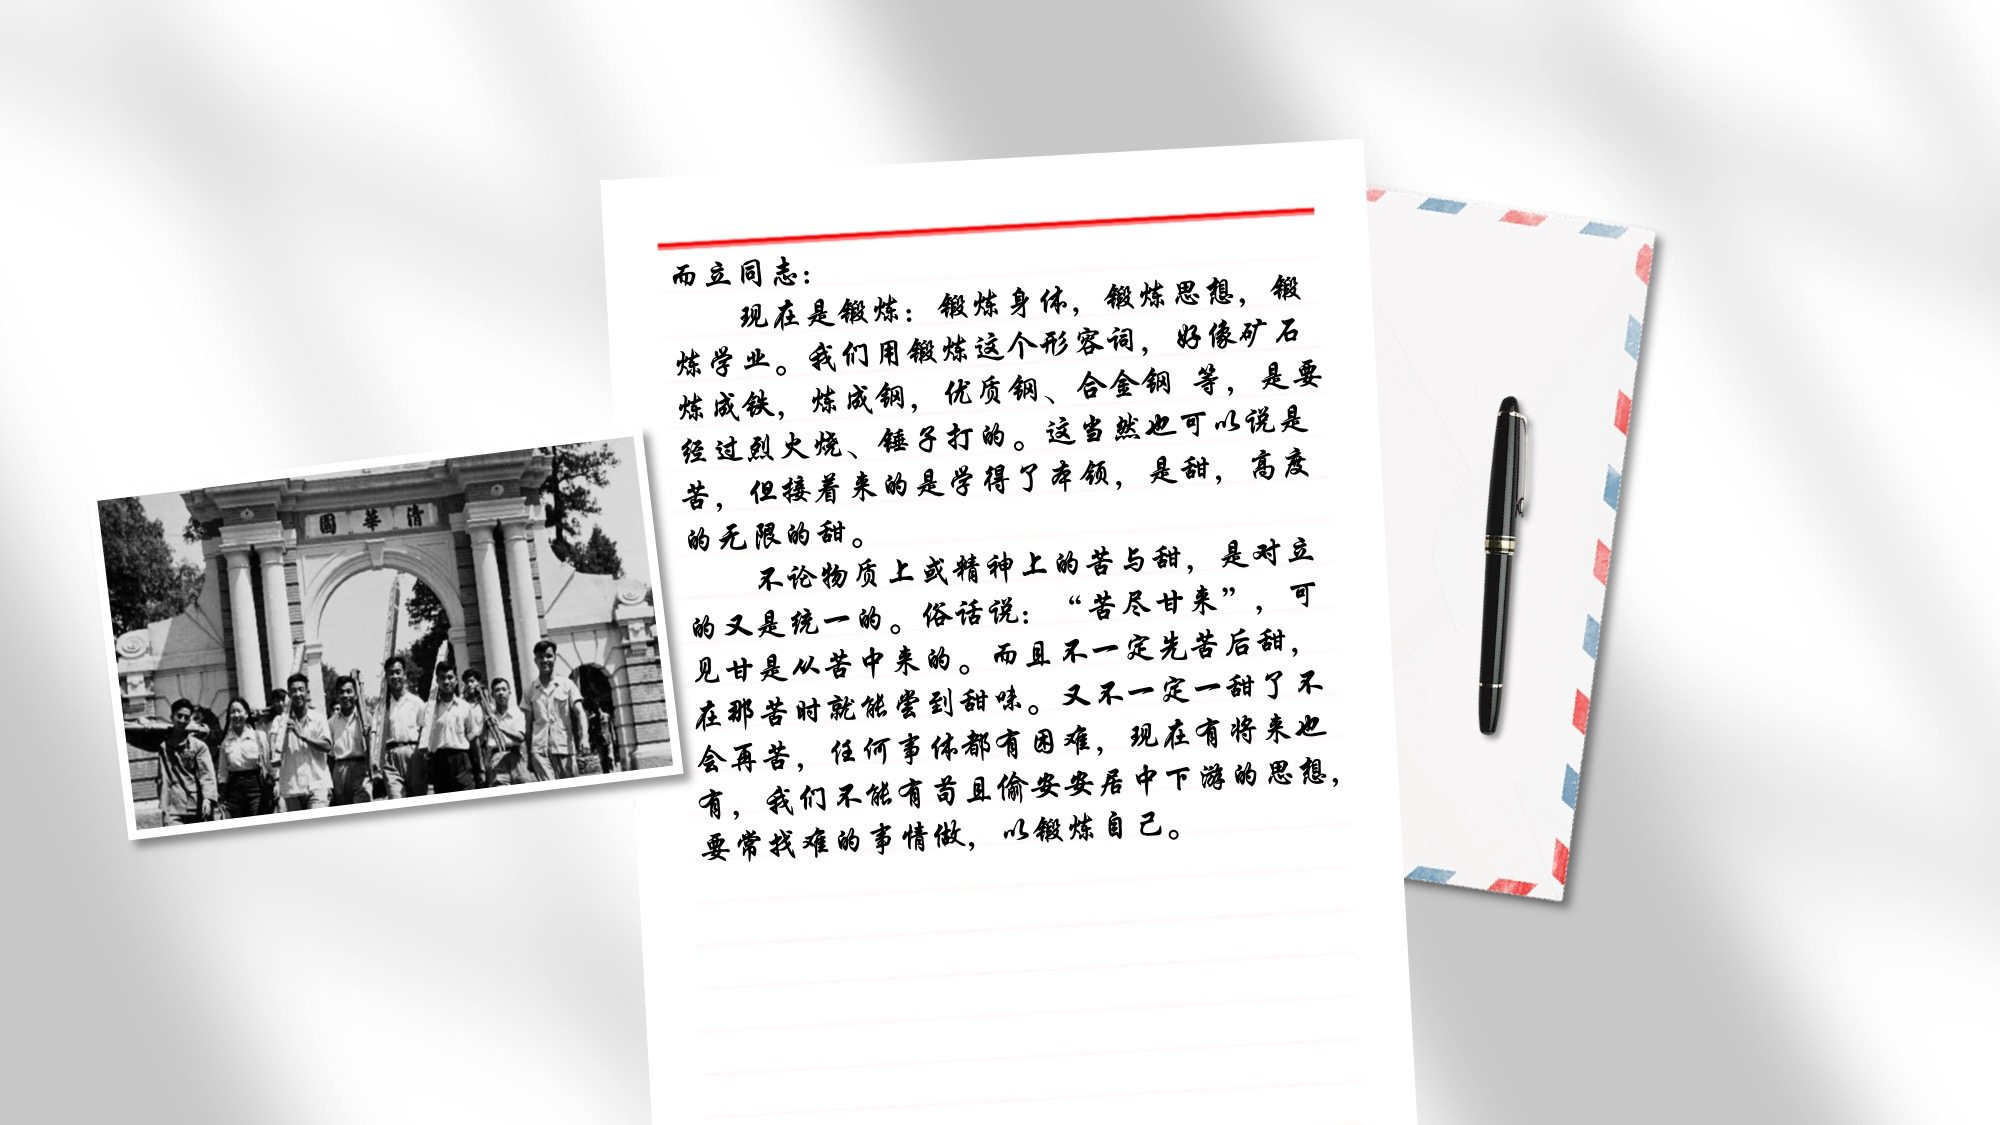 而立同志：
现在是锻炼：锻炼身体，锻炼思想，锻
炼学业。我们用锻炼这个形容词，好像矿石
炼成铁，炼成钢，优质钢、合金钢 等，是要
经过烈火烧、锤子打的。这当然也可以说是
苦，但接着来的是学得了本领，是甜，高度
的无限的甜。
不论物质上或精神上的苦与甜，是对立
的又是统一的。俗话说：“苦尽甘来”，可
见甘是从苦中来的。而且不一定先苦后甜，
在那苦时就能尝到甜味。又不一定一甜了不
会再苦，任何事体都有困难，现在有将来也
有，我们不能有苟且偷安安居中下游的思想，
要常找难的事情做，以锻炼自己。
園華清